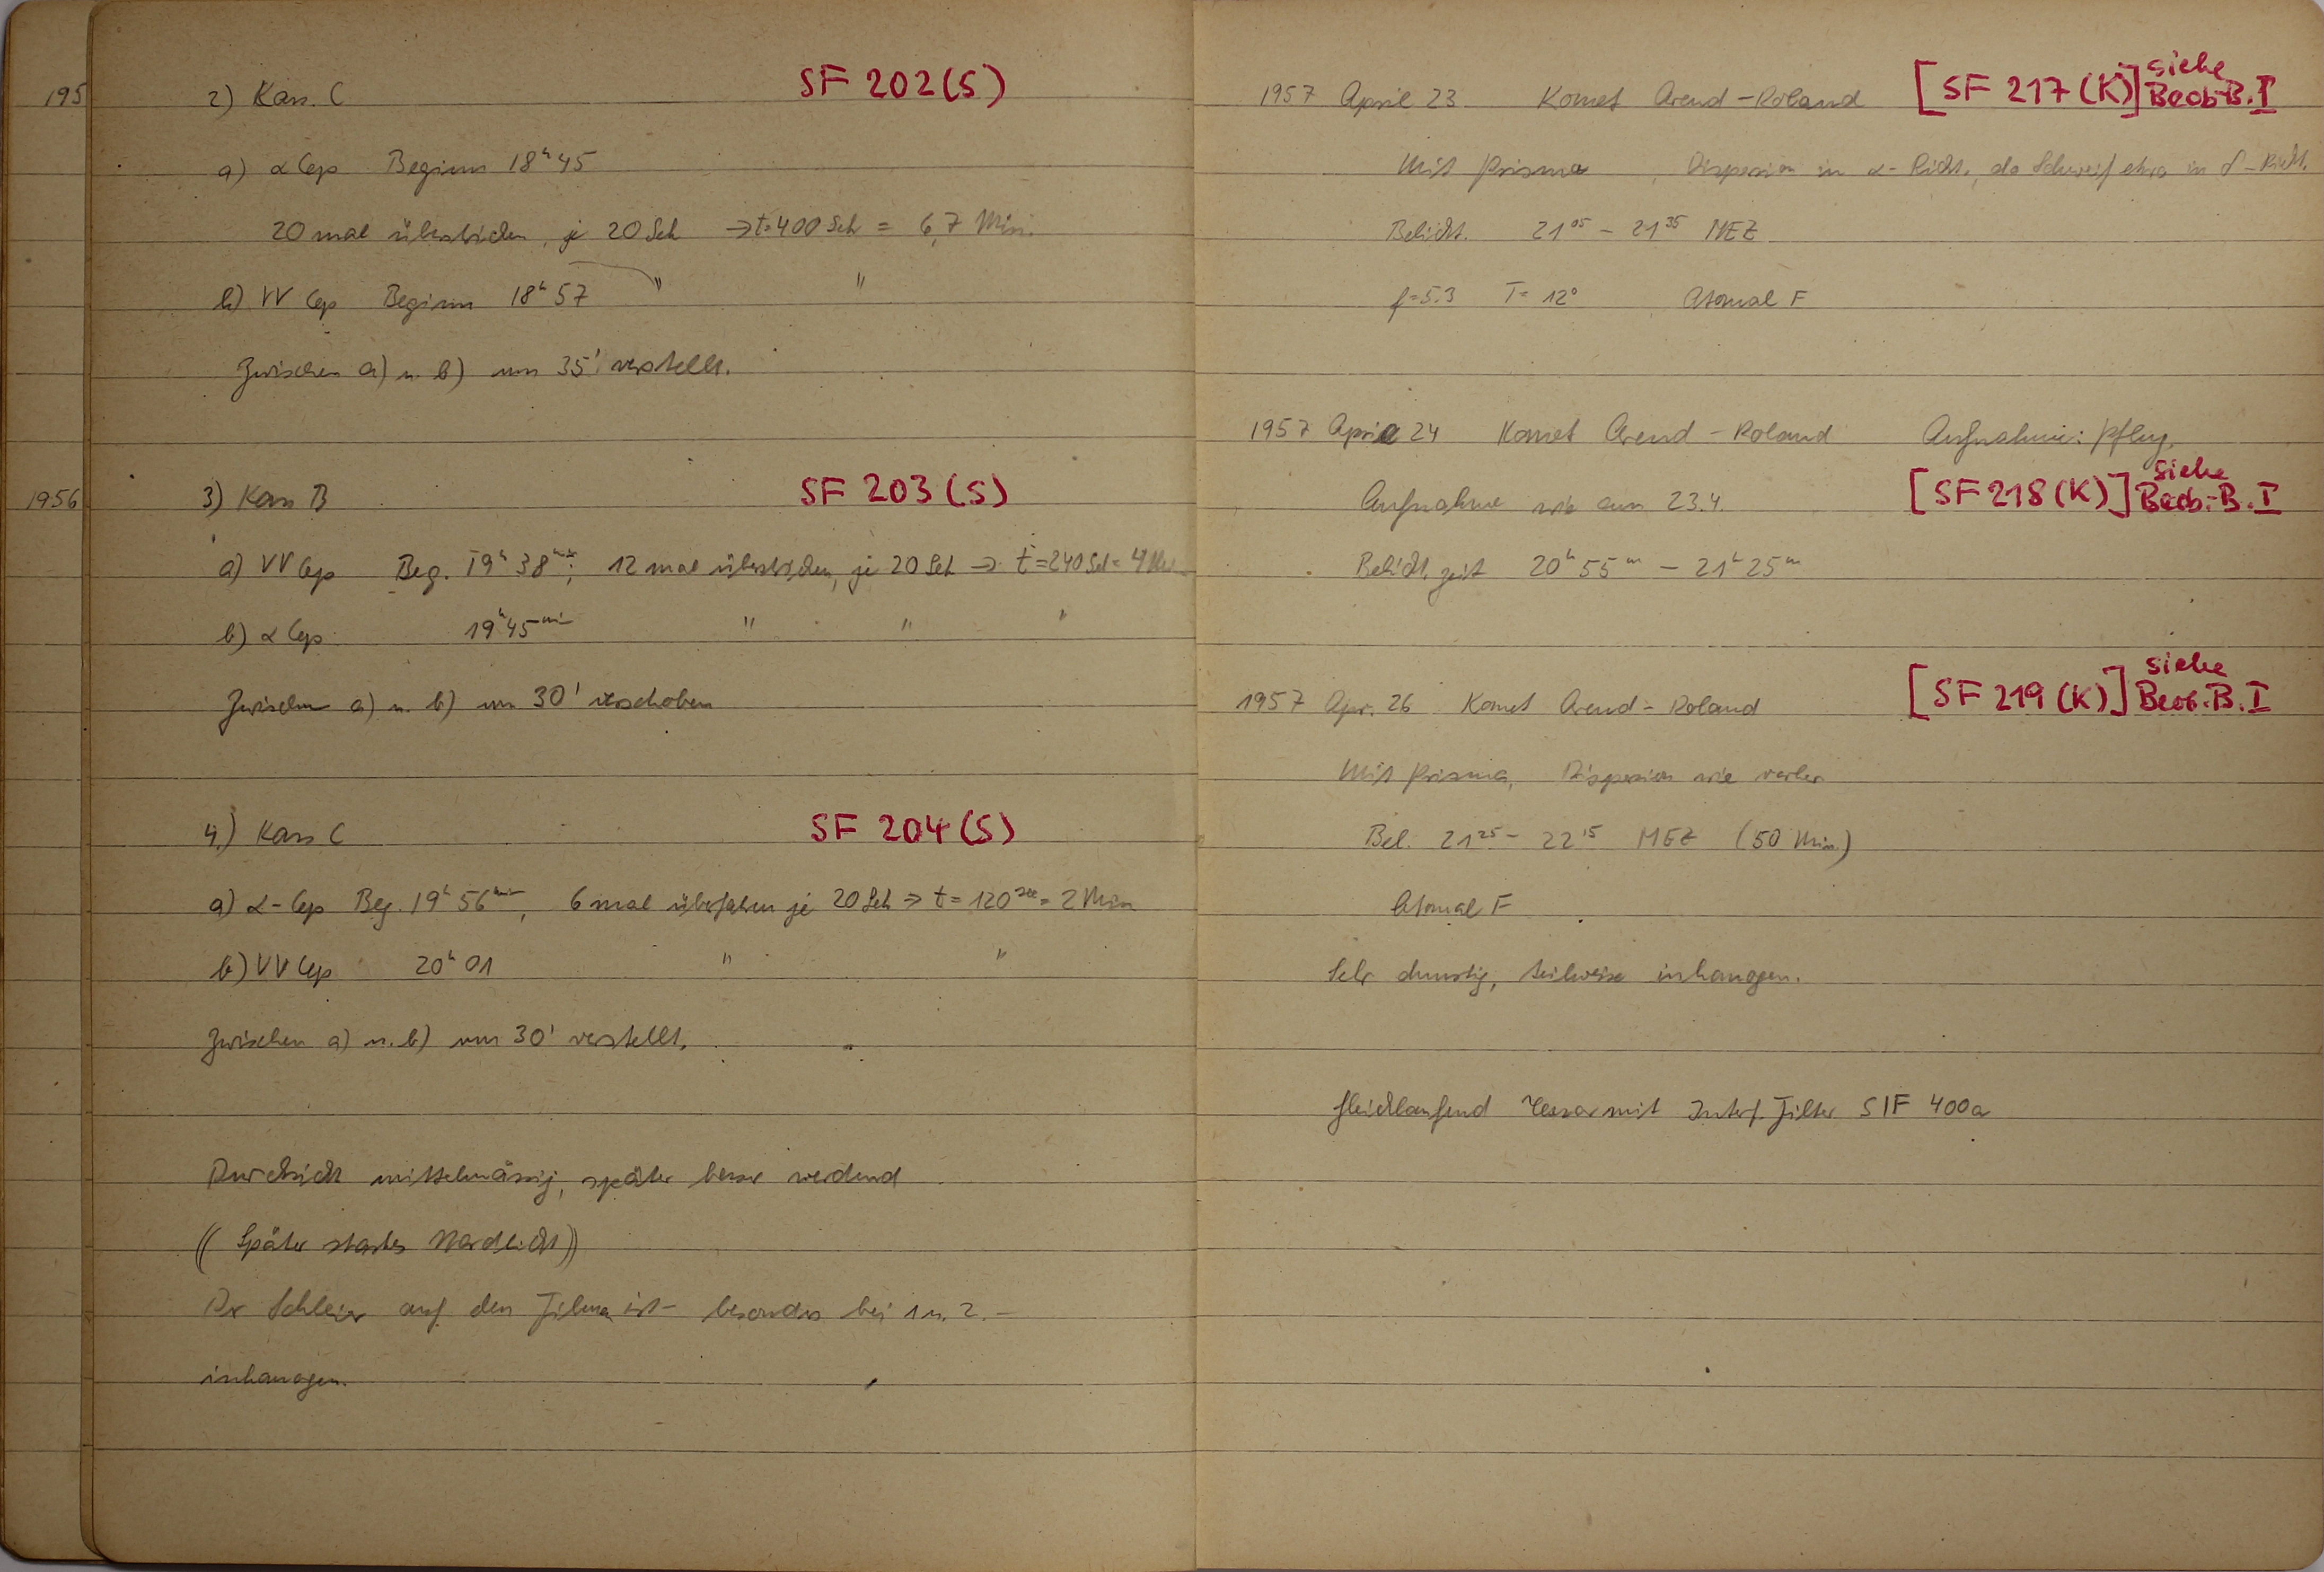 195
2) Kass. C SF 202 (S)
a) α Cep Beginn 18ʰ45
20 mal überstrichen, je 20 Sek → t=400 Sek = 6,7 Min.
b) VV Cep Beginn 18ʰ57 " "
Zwischen a) u. b) um 35' verstellt.
1956
3) Kass B SF 203 (S)
a) VV Cep Beg. 19ʰ38ᵐⁱⁿ; 12 mal überstrichen, je 20 Sek → t=240 Sek = 4 Min
b) α Cep 19ʰ45ᵐⁱⁿ " " "
Zwischen a) u. b) um 30' verschoben
4.) Kass C SF 204 (S)
a) α-Cep Beg. 19ʰ56ᵐⁱⁿ, 6 mal überfahren je 20 Sek → t = 120ˢᵉᵏ = 2 Min
b) VV Cep 20ʰ01 " "
Zwischen a) u. b) um 30' verstellt.
Durchsicht mittelmässig, später besser werdend
((Später starkes Nordlicht))
Der Schleier auf den Filmen ist - besonders bei 1 u. 2. -
inhomogen.
1957 April 23 Komet Arend-Roland [SF 217 (K)] siehe Beob-B. I
Mit Prisma, Dispersion in α-Richt., da Schweif etwa in δ-Richt.
Belicht. 21⁰⁵ - 21³⁵ MEZ
f=5.3 T= 12° Atomal F
1957 April 24 Komet Arend-Roland Aufnahme: Pflug.
Aufnahme wie am 23.4. [SF 218 (K)] siehe Beob.-B. I
Belicht. zeit 20ʰ55ᵐ - 21ʰ25ᵐ
1957 Apr. 26 Komet Arend-Roland [SF 219 (K)] siehe Beob.-B. I
Mit Prisma, Dispersion wie vorher
Bel. 21²⁵ - 22¹⁵ MEZ (50 Min.)
Atomal F
Sehr dunstig, teilweise inhomogen.
Gleichlaufend Tessar mit Interf. Filter SIF 400a